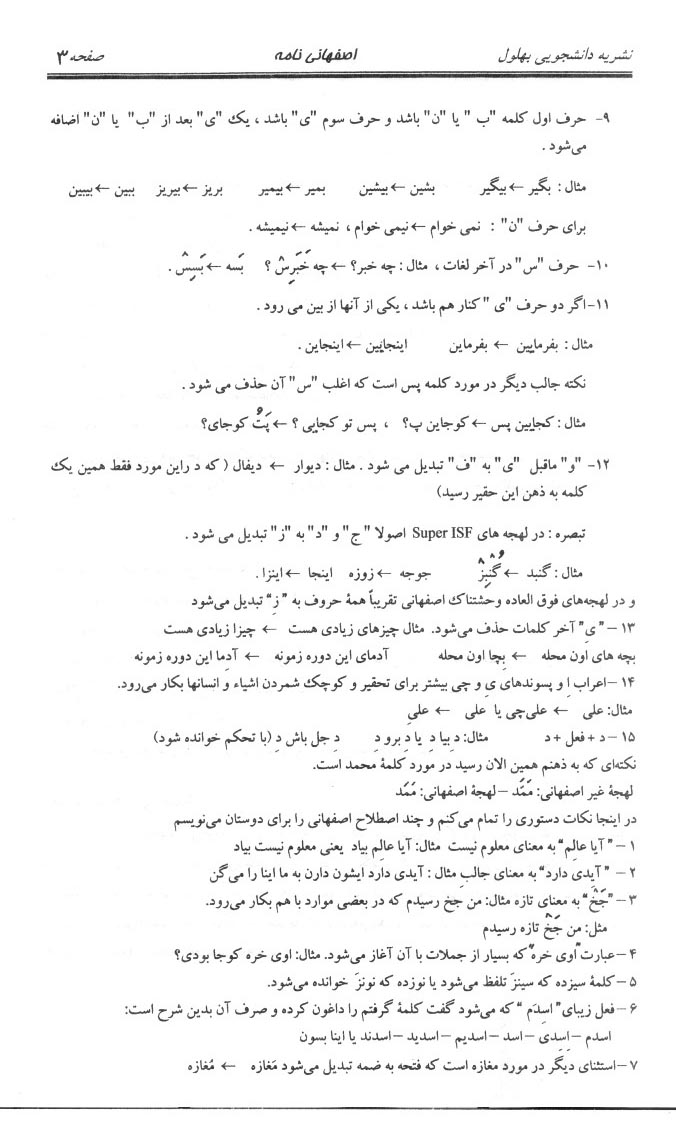 نشریه دانشجویی بهلول اصفهانی نامه صفحه ۳
۹- حرف اول کلمه "ب " یا "ن" باشد و حرف سوم "ی" باشد ، یک "ی" بعد از "ب" یا "ن" اضافه
می‌شود .
مثال : بگیر ← بیگیر بشین ← بیشین بمیر ← بیمیر بریز ← بیریز ببین ← بیبین
برای حرف "ن" : نمی خوام ← نیمی خوام ، نمیشه ← نیمیشه .
۱۰- حرف "س" در آخر لغات ، مثال : چه خبر؟ ← چه خَبَرِسُ ؟ بَسه ← بَسِسُ .
۱۱-اگر دو حرف "ی " کنار هم باشد ، یکی از آنها از بین می رود .
مثال : بفرمایین ← بفرماین اینجایین ← اینجاین .
نکته جالب دیگر در مورد کلمه پس است که اغلب "س" آن حذف می شود .
مثال : کجایین پس ← کوجاین پ؟ ، پس تو کجایی ؟ ← پَتُ کوجای؟
۱۲- "و" ماقبل "ی" به "ف" تبدیل می شود . مثال : دیوار ← دیفال ( که د راین مورد فقط همین یک
کلمه به ذهن این حقیر رسید)
تبصره : در لهجه های Super ISF اصولا " ج" و "د" به "ز" تبدیل می شود .
مثال : گنبد ← گُنبِزُ جوجه ← زوزه اینجا ← اینزا .
و در لهجه‌های فوق العاده وحشتناک اصفهانی تقریباً همهٔ حروف به " زِ" تبدیل می‌شود
۱۳ – " یِ" آخر کلمات حذف می‌شود. مثال چیزهای زیادی هست ← چیزا زیادی هست
بچه های اون محله ← بچا اون محله آدمای این دوره زمونه ← آدما این دوره زمونه
۱۴ –اعراب اِ و پسوندهای یِ و چی بیشتر برای تحقیر و کوچک شمردن اشیاء و انسانها بکار می‌رود.
مثال: علی ← علی‌چی یا علی ← علیِ
۱۵ – د + فعل + د مثال: دِ بیا دِ یا دِ برو دِ دِ جل باش دِ (با تحکم خوانده شود)
نکته‌ای که به ذهنم همین الان رسید در مورد کلمهٔ محمد است.
لهجهٔ غیر اصفهانی: مَمَّد – لهجهٔ اصفهانی: مَمَد
در اینجا نکات دستوری را تمام می‌کنم و چند اصطلاح اصفهانی را برای دوستان می‌نویسم
۱ – " آیا عالِم" به معنای معلوم نیست مثال: آیا عالِم بیاد یعنی معلوم نیست بیاد
۲ – " آیدی دارد" به معنای جالب مثال : آیدی دارد ایشون دارن به ما اینا را می‌گن
۳ – "جَخُ" به معنای تازه مثال: من جخ رسیدم که در بعضی موارد با هم بکار می‌رود.
مثل: من جَخُ تازه رسیدم
۴ –عبارت "اوی خره" که بسیار از جملات با آن آغاز می‌شود. مثال: اوی خره کوجا بودی؟
۵ – کلمهٔ سیزده که سینزَ تلفظ می‌شود یا نوزده که نونزَ خوانده می‌شود.
۶ –فعل زیبای" اسِدَم " که می‌شود گفت کلمهٔ گرفتم را داغون کرده و صرف آن بدین شرح است:
اسدم – اِسِدی – اسد – اسدیم – اسدید – اسدند یا اینا بسون
۷ –استثنای دیگر در مورد مغازه است که فتحه به ضمه تبدیل می‌شود مَغازه ← مُغازه